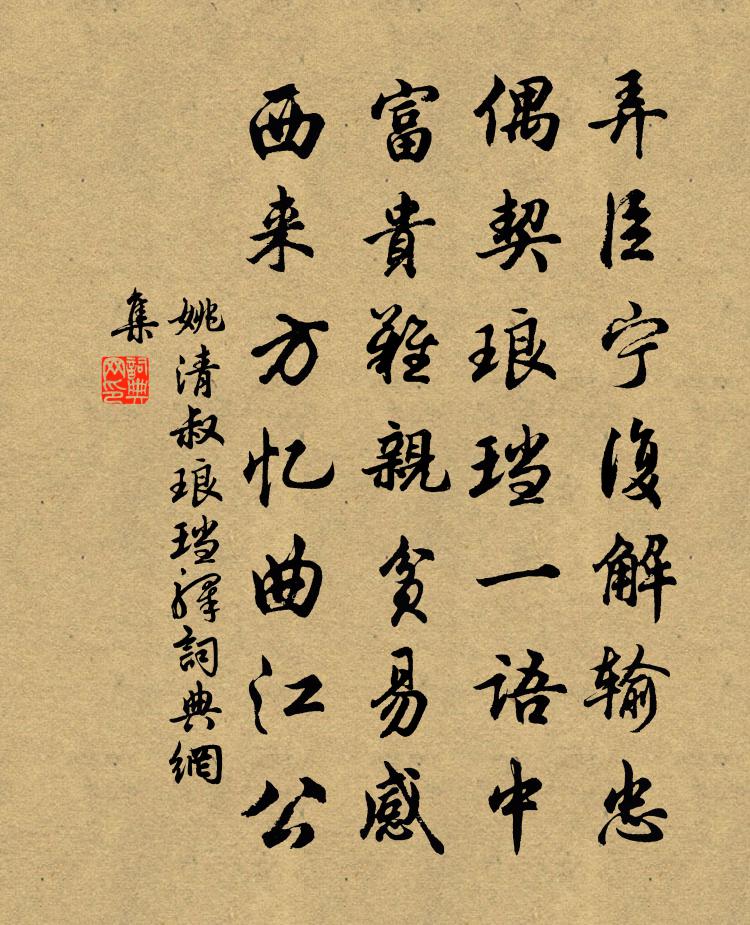 弄臣宁復解输忠
偶契琅珰一语中
富貴難親貧易感
西来方忆曲江公
姚清叔琅珰驛詞典網
集
詞典网印